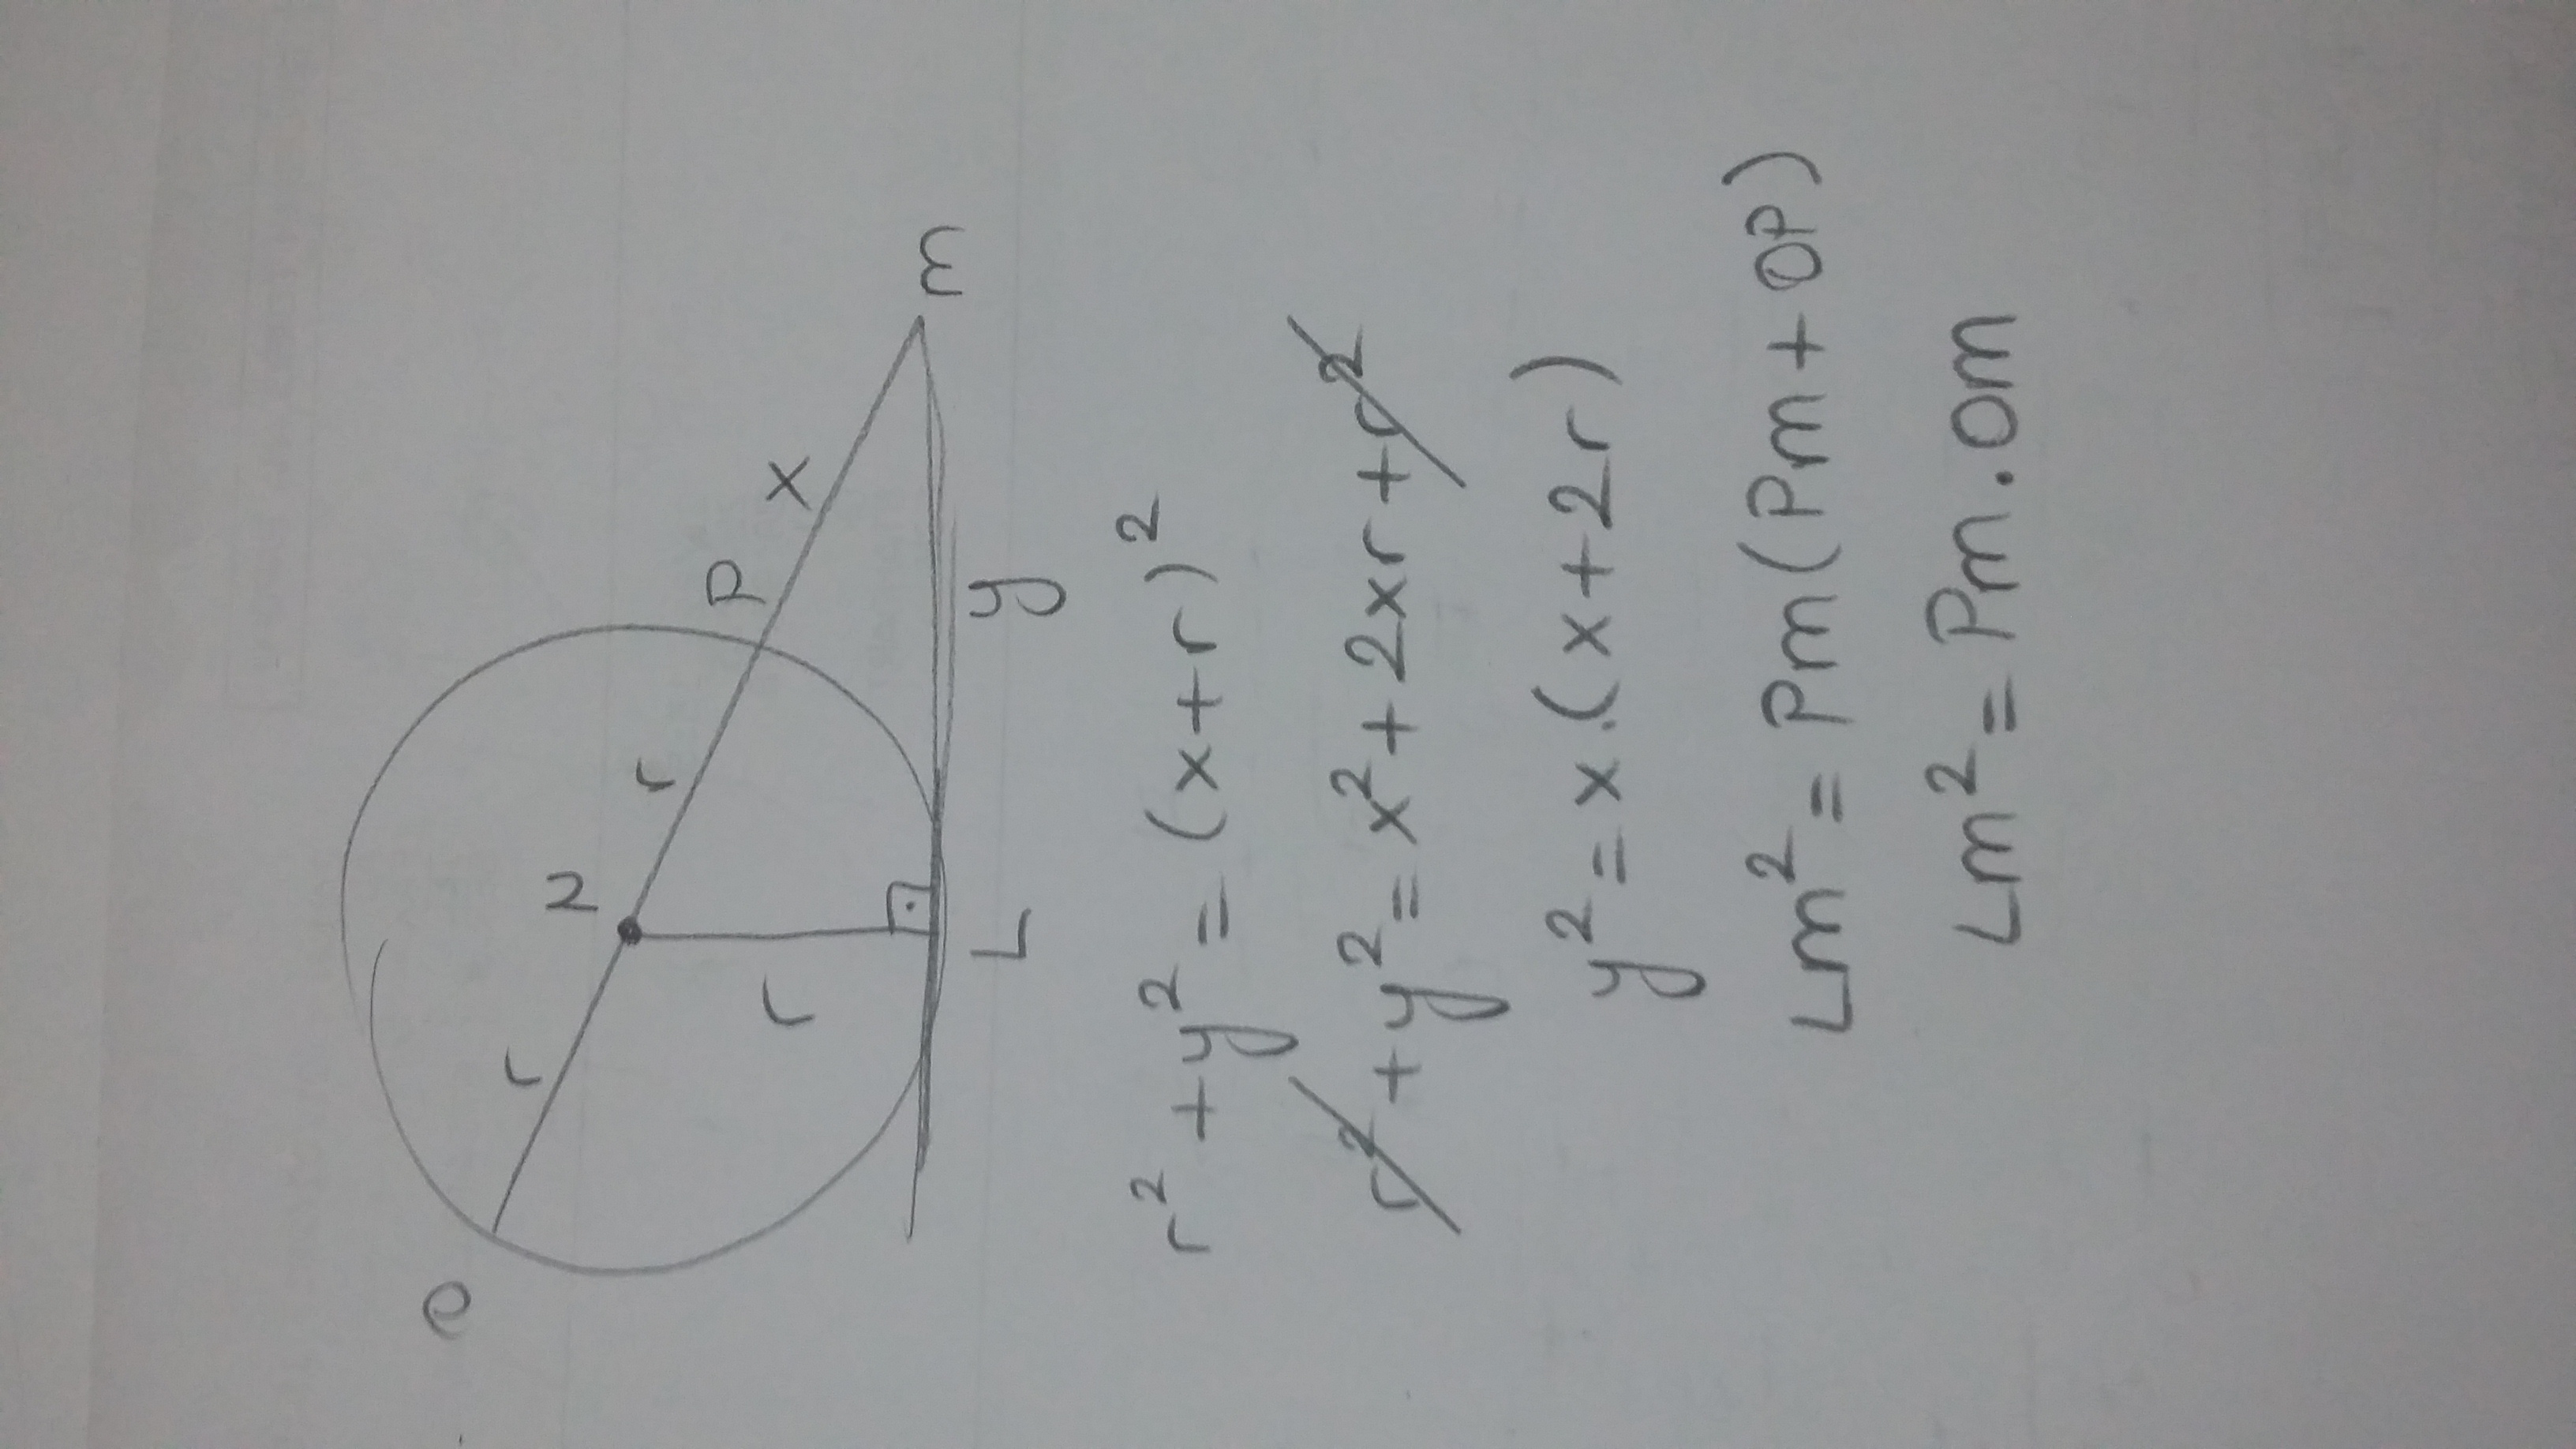 O
r
N
r
P
x
m
r
L
y
r² + y² = (x+r)²
r² + y² = x² + 2xr + r²
y² = x.(x+2r)
Lm² = Pm(Pm + OP)
Lm² = Pm.Om